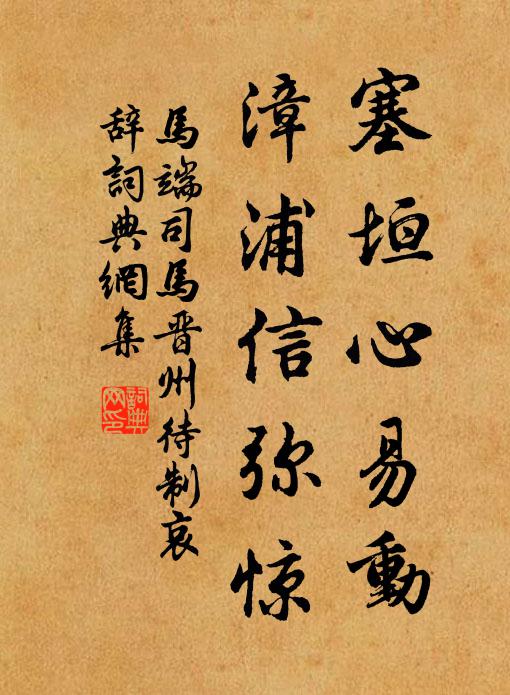 塞垣心易動
漳浦信弥惊
馬端司馬晋州待制哀
辞詞典網集
詞典网印